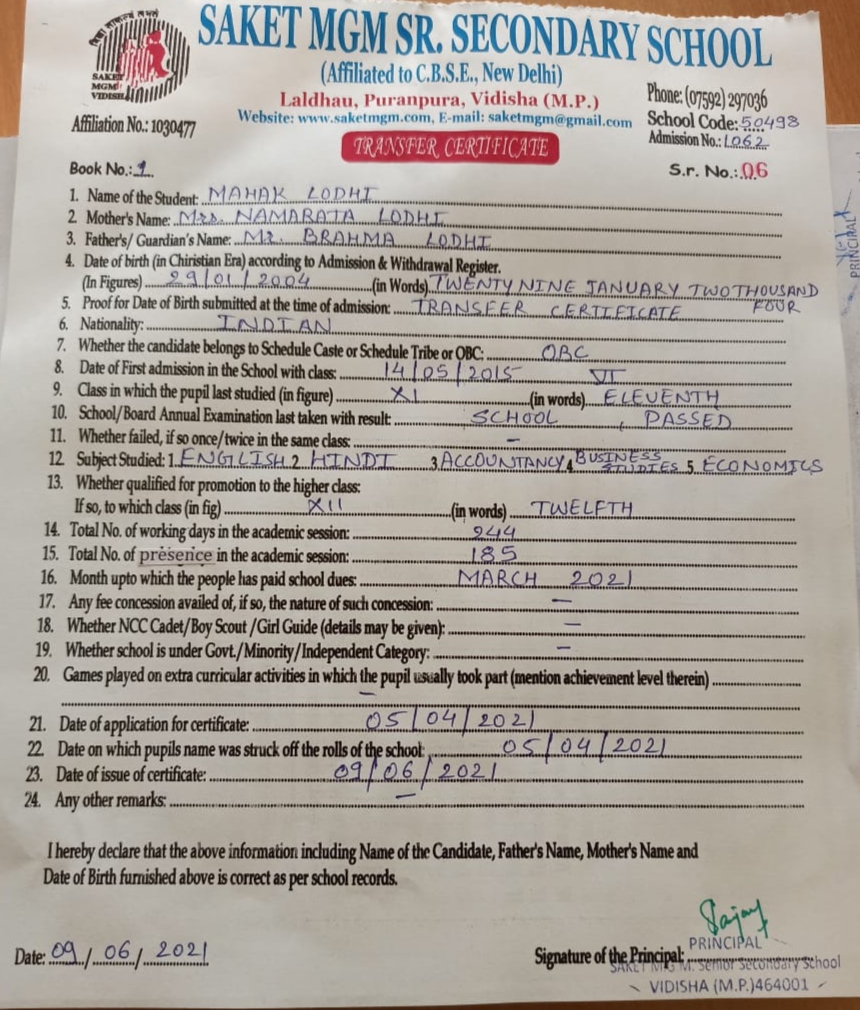 SAKET MGM SR. SECONDARY SCHOOL
(Affiliated to C.B.S.E., New Delhi)
SAKET
MGM
VIDISHA
Laldhau, Puranpura, Vidisha (M.P.)
Phone: (07592) 297036
Affiliation No.: 1030477
Website: www.saketmgm.com, E-mail: saketmgm@gmail.com
School Code: 50498
Admission No.: 1062
TRANSFER CERTIFICATE
Book No.: 1
S.r. No.: 06
1. Name of the Student: MAHAK LODHI
2. Mother's Name: Mrs. NAMARATA LODHI
3. Father's/ Guardian's Name: Mr. BRAHMA LODHI
4. Date of birth (in Chiristian Era) according to Admission & Withdrawal Register.
(In Figures) 29/01/2004 (in Words) TWENTY NINE JANUARY TWO THOUSAND
FOUR
5. Proof for Date of Birth submitted at the time of admission: TRANSFER CERTIFICATE
6. Nationality: INDIAN
7. Whether the candidate belongs to Schedule Caste or Schedule Tribe or OBC: OBC
8. Date of First admission in the School with class: 14/05/2015 VI
9. Class in which the pupil last studied (in figure) XI (in words) ELEVENTH
10. School/Board Annual Examination last taken with result: SCHOOL , PASSED
11. Whether failed, if so once/twice in the same class: –
12. Subject Studied: 1. ENGLISH 2. HINDI 3. ACCOUNTANCY 4. BUSINESS STUDIES 5. ECONOMICS
13. Whether qualified for promotion to the higher class:
If so, to which class (in fig) XII (in words) TWELFTH
14. Total No. of working days in the academic session: 244
15. Total No. of presence in the academic session: 185
16. Month upto which the people has paid school dues: MARCH 2021
17. Any fee concession availed of, if so, the nature of such concession: –
18. Whether NCC Cadet/Boy Scout /Girl Guide (details may be given): –
19. Whether school is under Govt./Minority/Independent Category: –
20. Games played on extra curricular activities in which the pupil usually took part (mention achievement level therein)
–
21. Date of application for certificate: 05/04/2021
22. Date on which pupils name was struck off the rolls of the school: 05/04/2021
23. Date of issue of certificate: 09/06/2021
24. Any other remarks: –
I hereby declare that the above information including Name of the Candidate, Father's Name, Mother's Name and
Date of Birth furnished above is correct as per school records.
Date: 09/06/2021
Signature of the Principal:
PRINCIPAL
SAKET M.G.M. Senior Secondary School
VIDISHA (M.P.)464001
PRINCIPAL